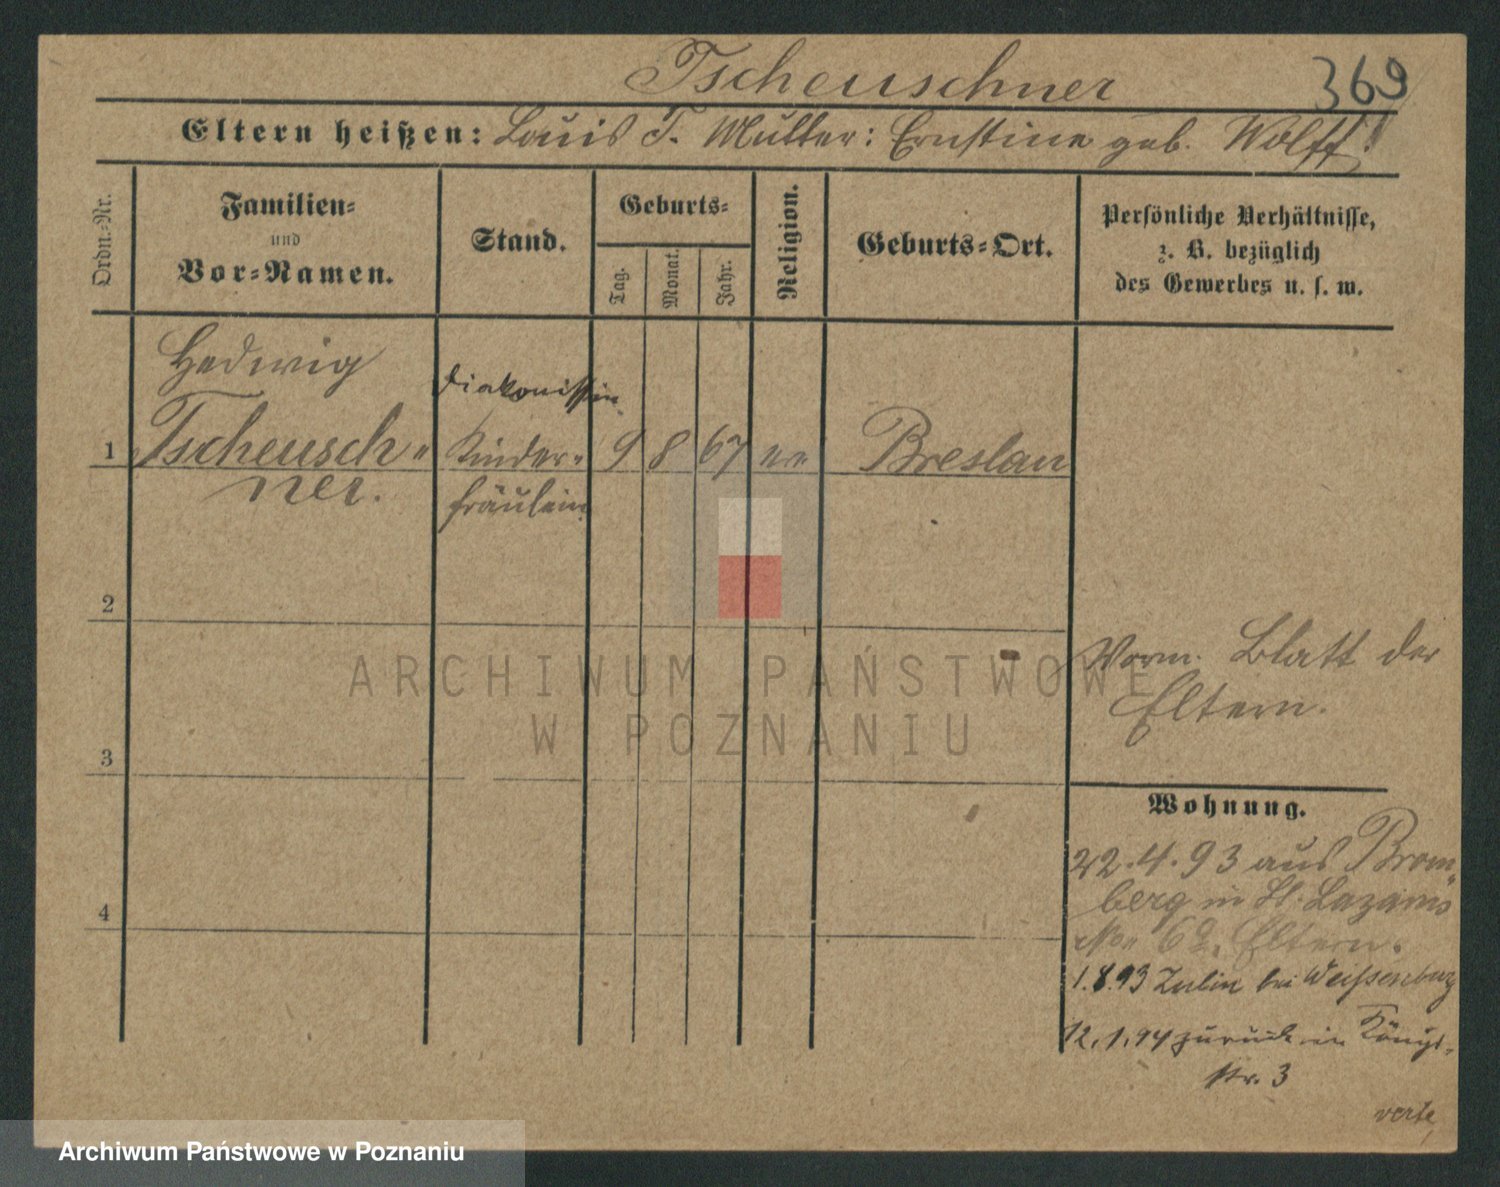 Tscheuschner 369
Eltern heißen: Louis T. Mutter: Ernstine geb. Wolff.
Ordn.-Nr.
Familien-
und
Vor-Namen.
Stand.
Geburts-
Tag.
Monat.
Jahr.
Religion.
Geburts-Ort.
Persönliche Verhältnisse,
z. B. bezüglich
des Gewerbes u. s. w.
Hedwig
Diakonissin
1 Tscheusch- Kinder- 9 8 67 ev Breslau
ner. fräulein
2
Vorm. Blatt der
Eltern.
3
Wohnung.
22.4.93 aus Brom-
berg in St. Lazarus
4
Eltern.
1.8.93 bei Weißenburg
12.1.94 zurück in Königs-
str. 3
verte
ARCHIWUM PAŃSTWOWE
W POZNANIU
Archiwum Państwowe w Poznaniu